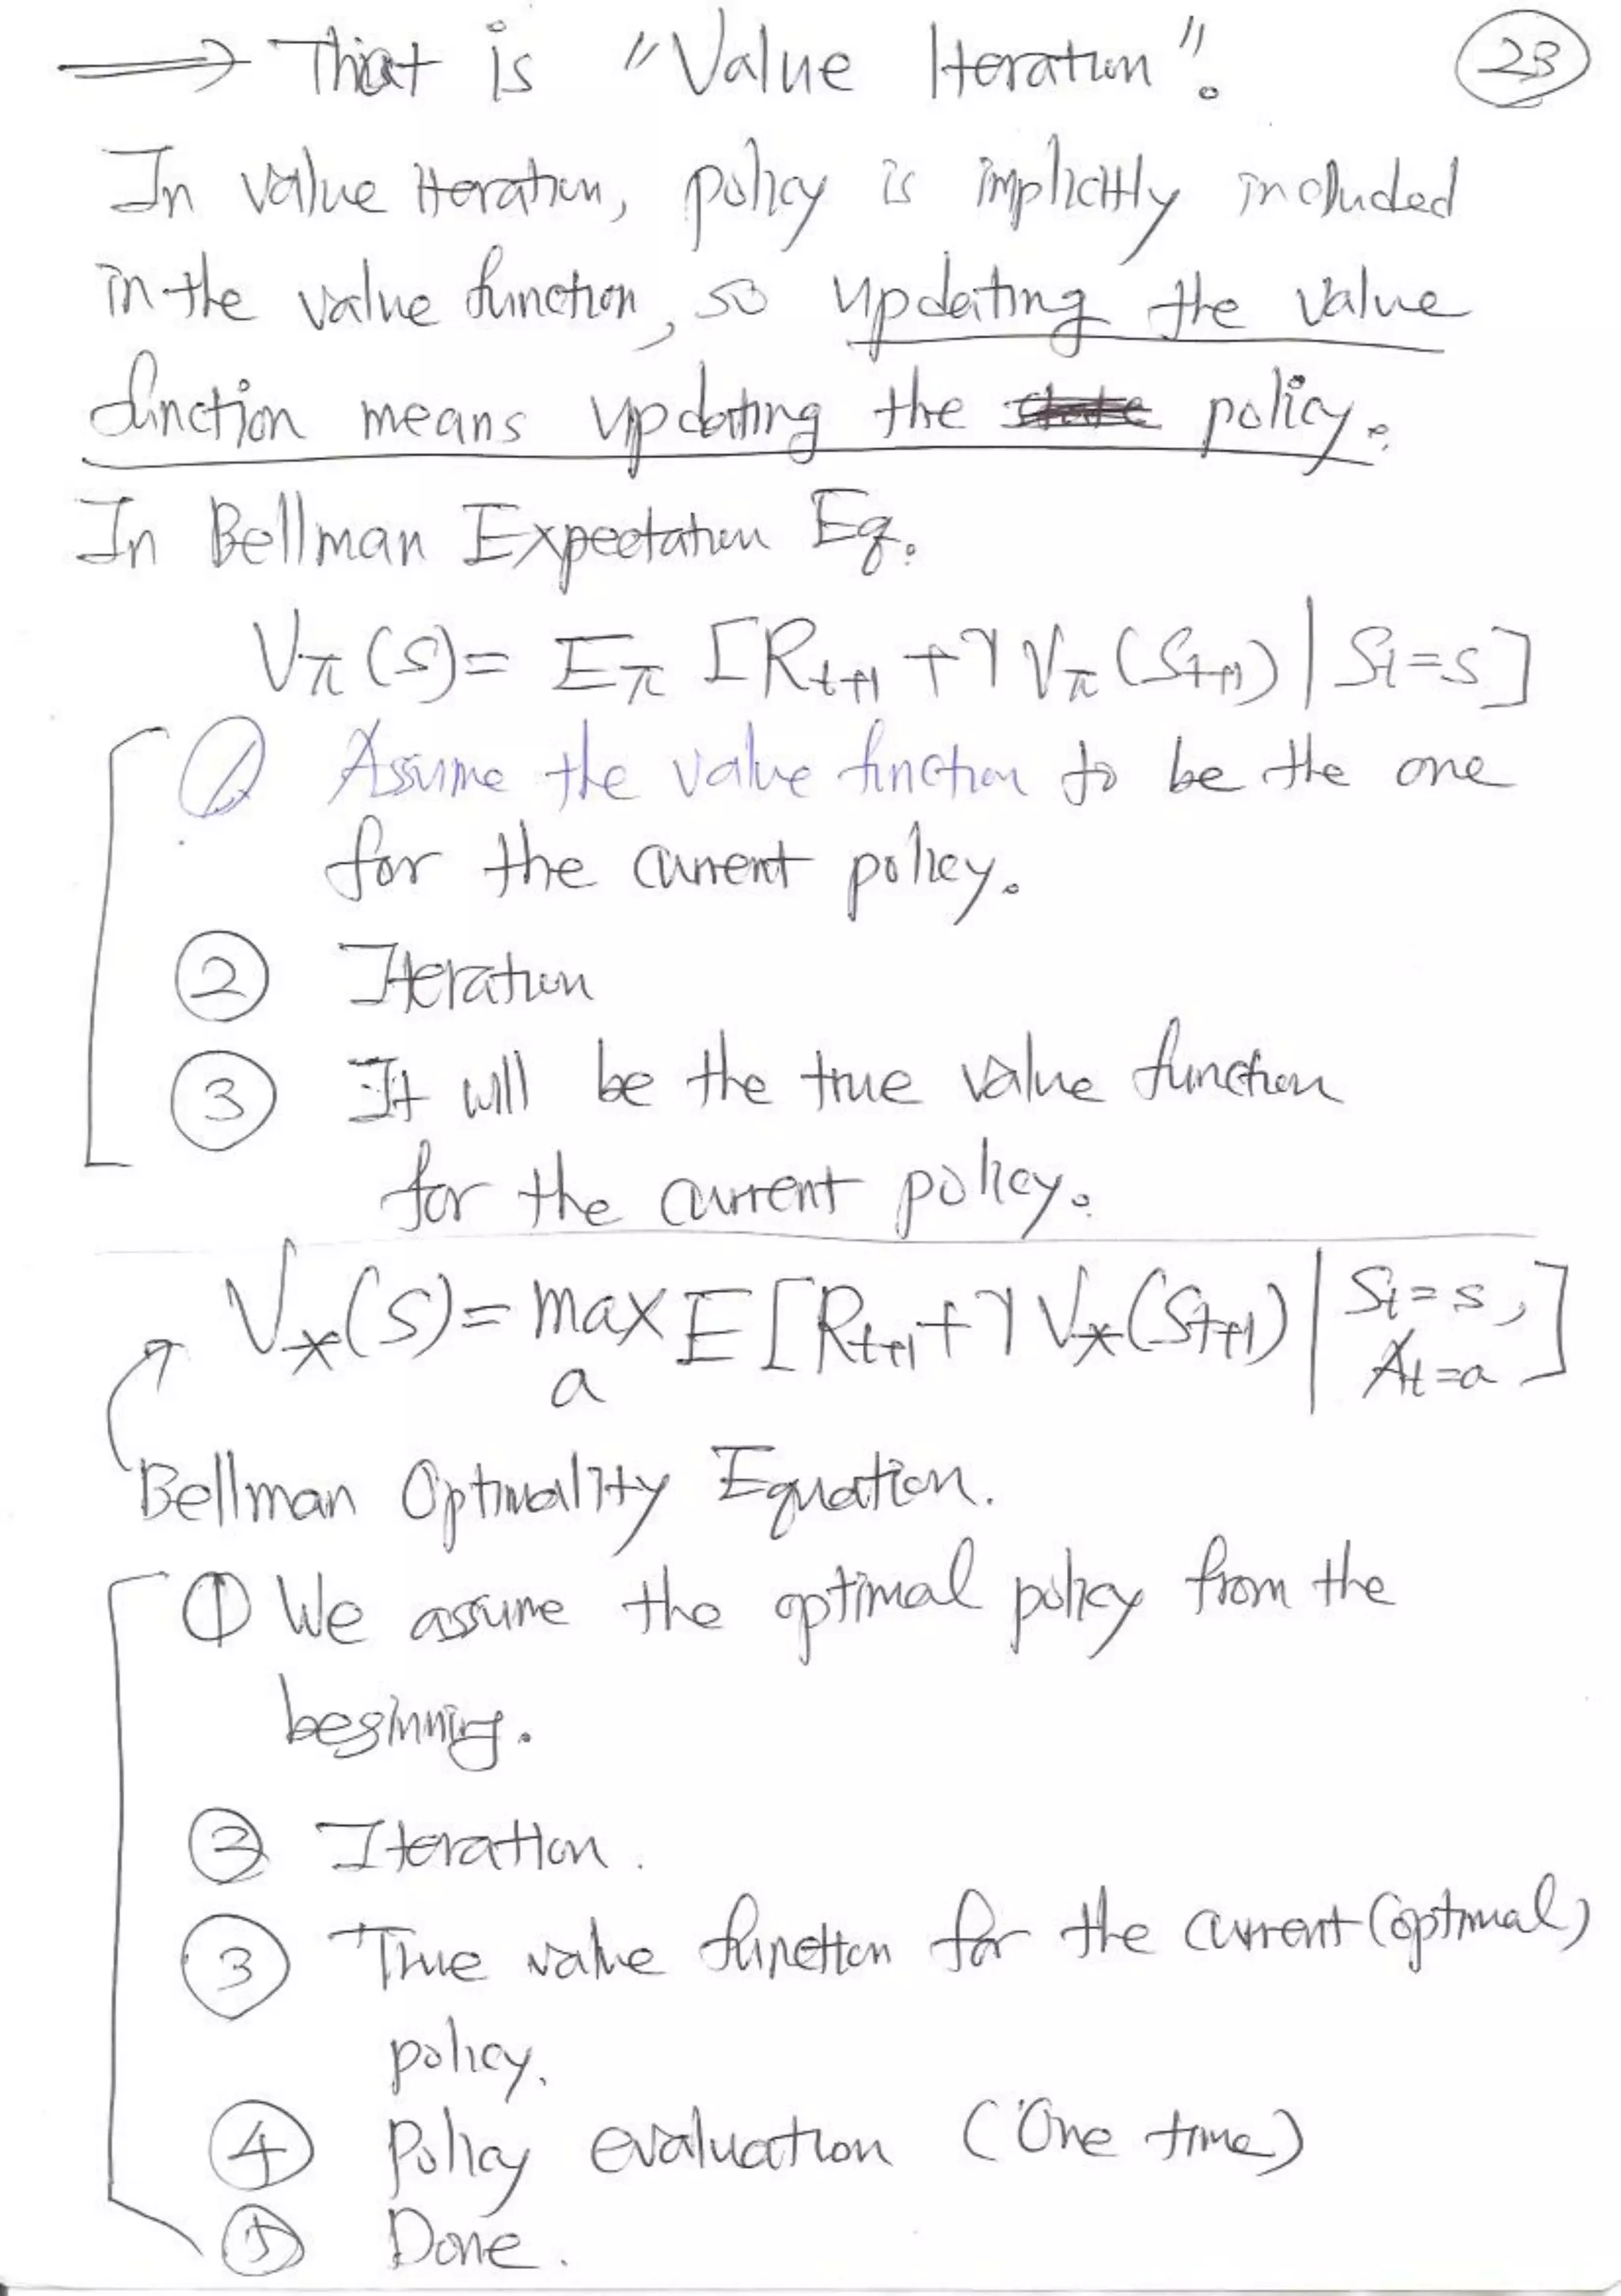 ⟹ That is "Value Iteration". 23
In value iteration, policy is implicitly included
in the value function, so updating the value
function means updating the policy.
In Bellman Expectation Eq.
Vπ(s) = Eπ [Rt+1 + γ Vπ(St+1) | St = s]
① Assume the value function to be the one
for the current policy.
② Iteration
③ It will be the true value function
for the current policy.
V*(s) = max E [Rt+1 + γ V*(St+1) | St = s, At = a]
a
Bellman Optimality Equation.
① We assume the optimal policy from the
beginning.
② Iteration.
③ True value function for the current (optimal)
policy.
④ Policy evaluation (One time)
⑤ Done.